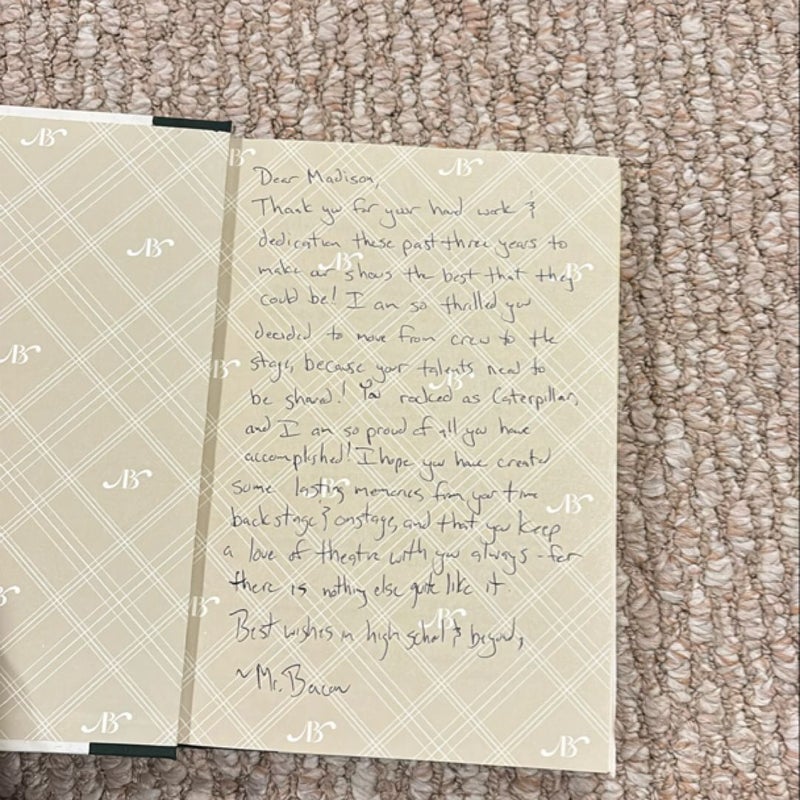 Dear Madison,
Thank you for your hard work &
dedication these past three years to
make our shows the best that they
could be! I am so thrilled you
decided to move from crew to the
stage, because your talents need to
be shared! You rocked as Caterpillar,
and I am so proud of all you have
accomplished! I hope you have created
some lasting memories from your time
backstage & onstage, and that you keep
a love of theatre with you always - for
there is nothing else quite like it.
Best wishes in high school & beyond,
~Mr. Bacon